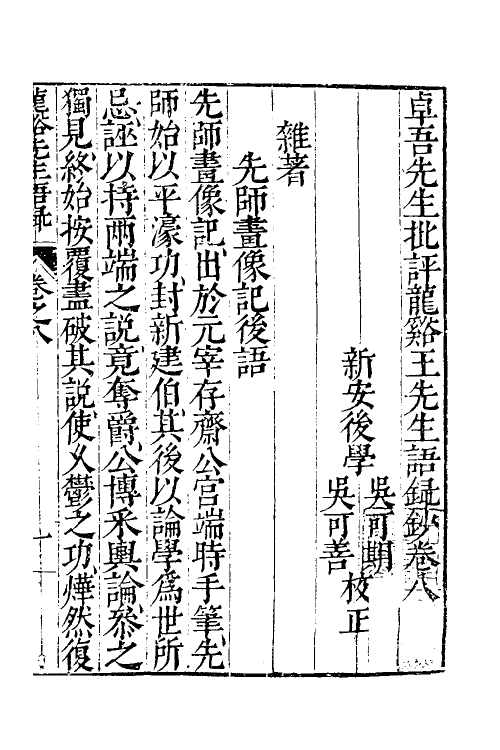 卓吾先生批評龍谿王先生語錄鈔卷八
新安後學
吳可期
吳可善
校正
雜著
先師畫像記後語
先師畫像記出於元宰存齋公宮端時手筆先
師始以平濠功封新建伯其後以論學爲世所
忌誣以持兩端之說竟奪爵公博采輿論叅之
獨見終始按覆盡破其說使乆鬱之功燁然復
龍谿先生語錄 卷之八 一